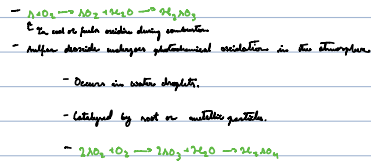 - S+O₂ → SO₂ + H₂O → H₂SO₃
↑ In coal or fuels oxidise during combustion
- Sulfur dioxide undergoes photochemical oxidation in the atmosphere
- Occurs in water droplets.
- Catalysed by soot or metallic particles.
- 2SO₂ + O₂ → 2SO₃ + H₂O → H₂SO₄